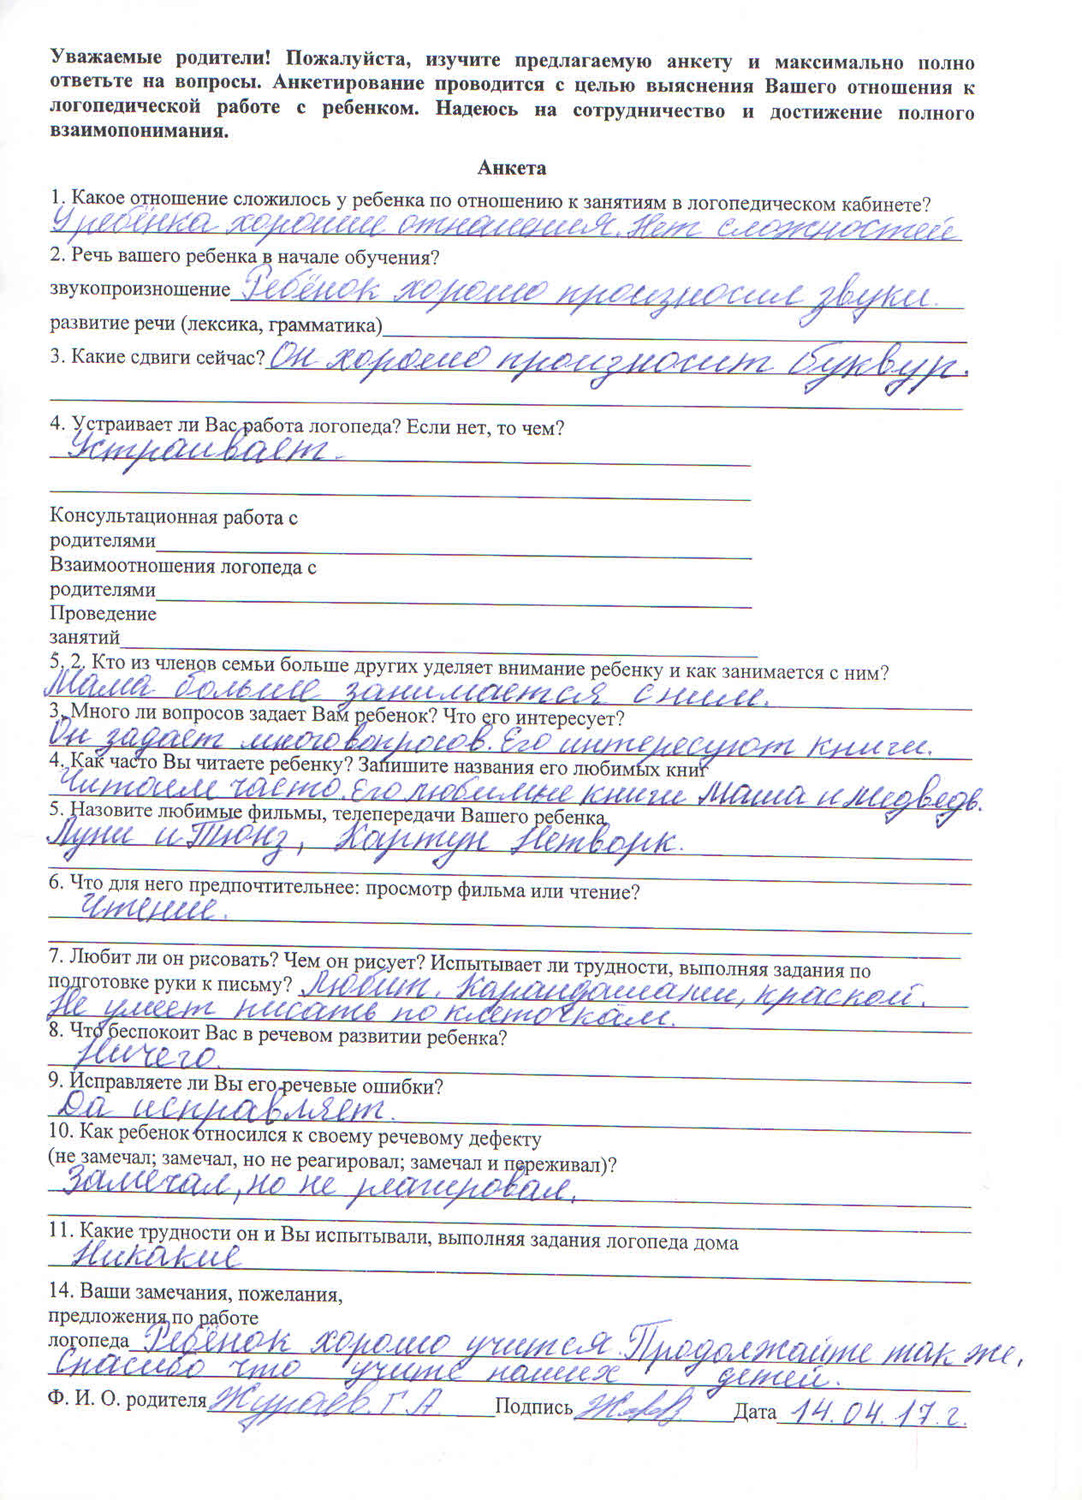 Уважаемые родители! Пожалуйста, изучите предлагаемую анкету и максимально полно
ответьте на вопросы. Анкетирование проводится с целью выяснения Вашего отношения к
логопедической работе с ребенком. Надеюсь на сотрудничество и достижение полного
взаимопонимания.
Анкета
1. Какое отношение сложилось у ребенка по отношению к занятиям в логопедическом кабинете?
У ребёнка хорошие отношения. Нет сложностей
2. Речь вашего ребенка в начале обучения?
звукопроизношение Ребёнок хорошо произносил звуки.
развитие речи (лексика, грамматика)
3. Какие сдвиги сейчас? Он хорошо произносит буквур.
4. Устраивает ли Вас работа логопеда? Если нет, то чем?
Устраивает.
Консультационная работа с
родителями
Взаимоотношения логопеда с
родителями
Проведение
занятий
5. 2. Кто из членов семьи больше других уделяет внимание ребенку и как занимается с ним?
Мама больше занимается с ним.
3. Много ли вопросов задает Вам ребенок? Что его интересует?
Он задаёт много вопросов. Его интересуют книги.
4. Как часто Вы читаете ребенку? Запишите названия его любимых книг
Читаем часто. Его любимые книги Маша и медведь.
5. Назовите любимые фильмы, телепередачи Вашего ребенка
Луни и Тюнз, Картун Нетворк.
6. Что для него предпочтительнее: просмотр фильма или чтение?
Чтение.
7. Любит ли он рисовать? Чем он рисует? Испытывает ли трудности, выполняя задания по
подготовке руки к письму? Любит. Карандашами, краской.
Не умеет писать по клеточкам.
8. Что беспокоит Вас в речевом развитии ребенка?
Ничего.
9. Исправляете ли Вы его речевые ошибки?
Да исправляет.
10. Как ребенок относился к своему речевому дефекту
(не замечал; замечал, но не реагировал; замечал и переживал)?
Замечал, но не реагировал.
11. Какие трудности он и Вы испытывали, выполняя задания логопеда дома
Никакие
14. Ваши замечания, пожелания,
предложения по работе
логопеда Ребёнок хорошо учится. Продолжайте так же.
Спасибо что учите наших детей.
Ф. И. О. родителя Жураев. Г. А Подпись Дата 14.04.17.г.